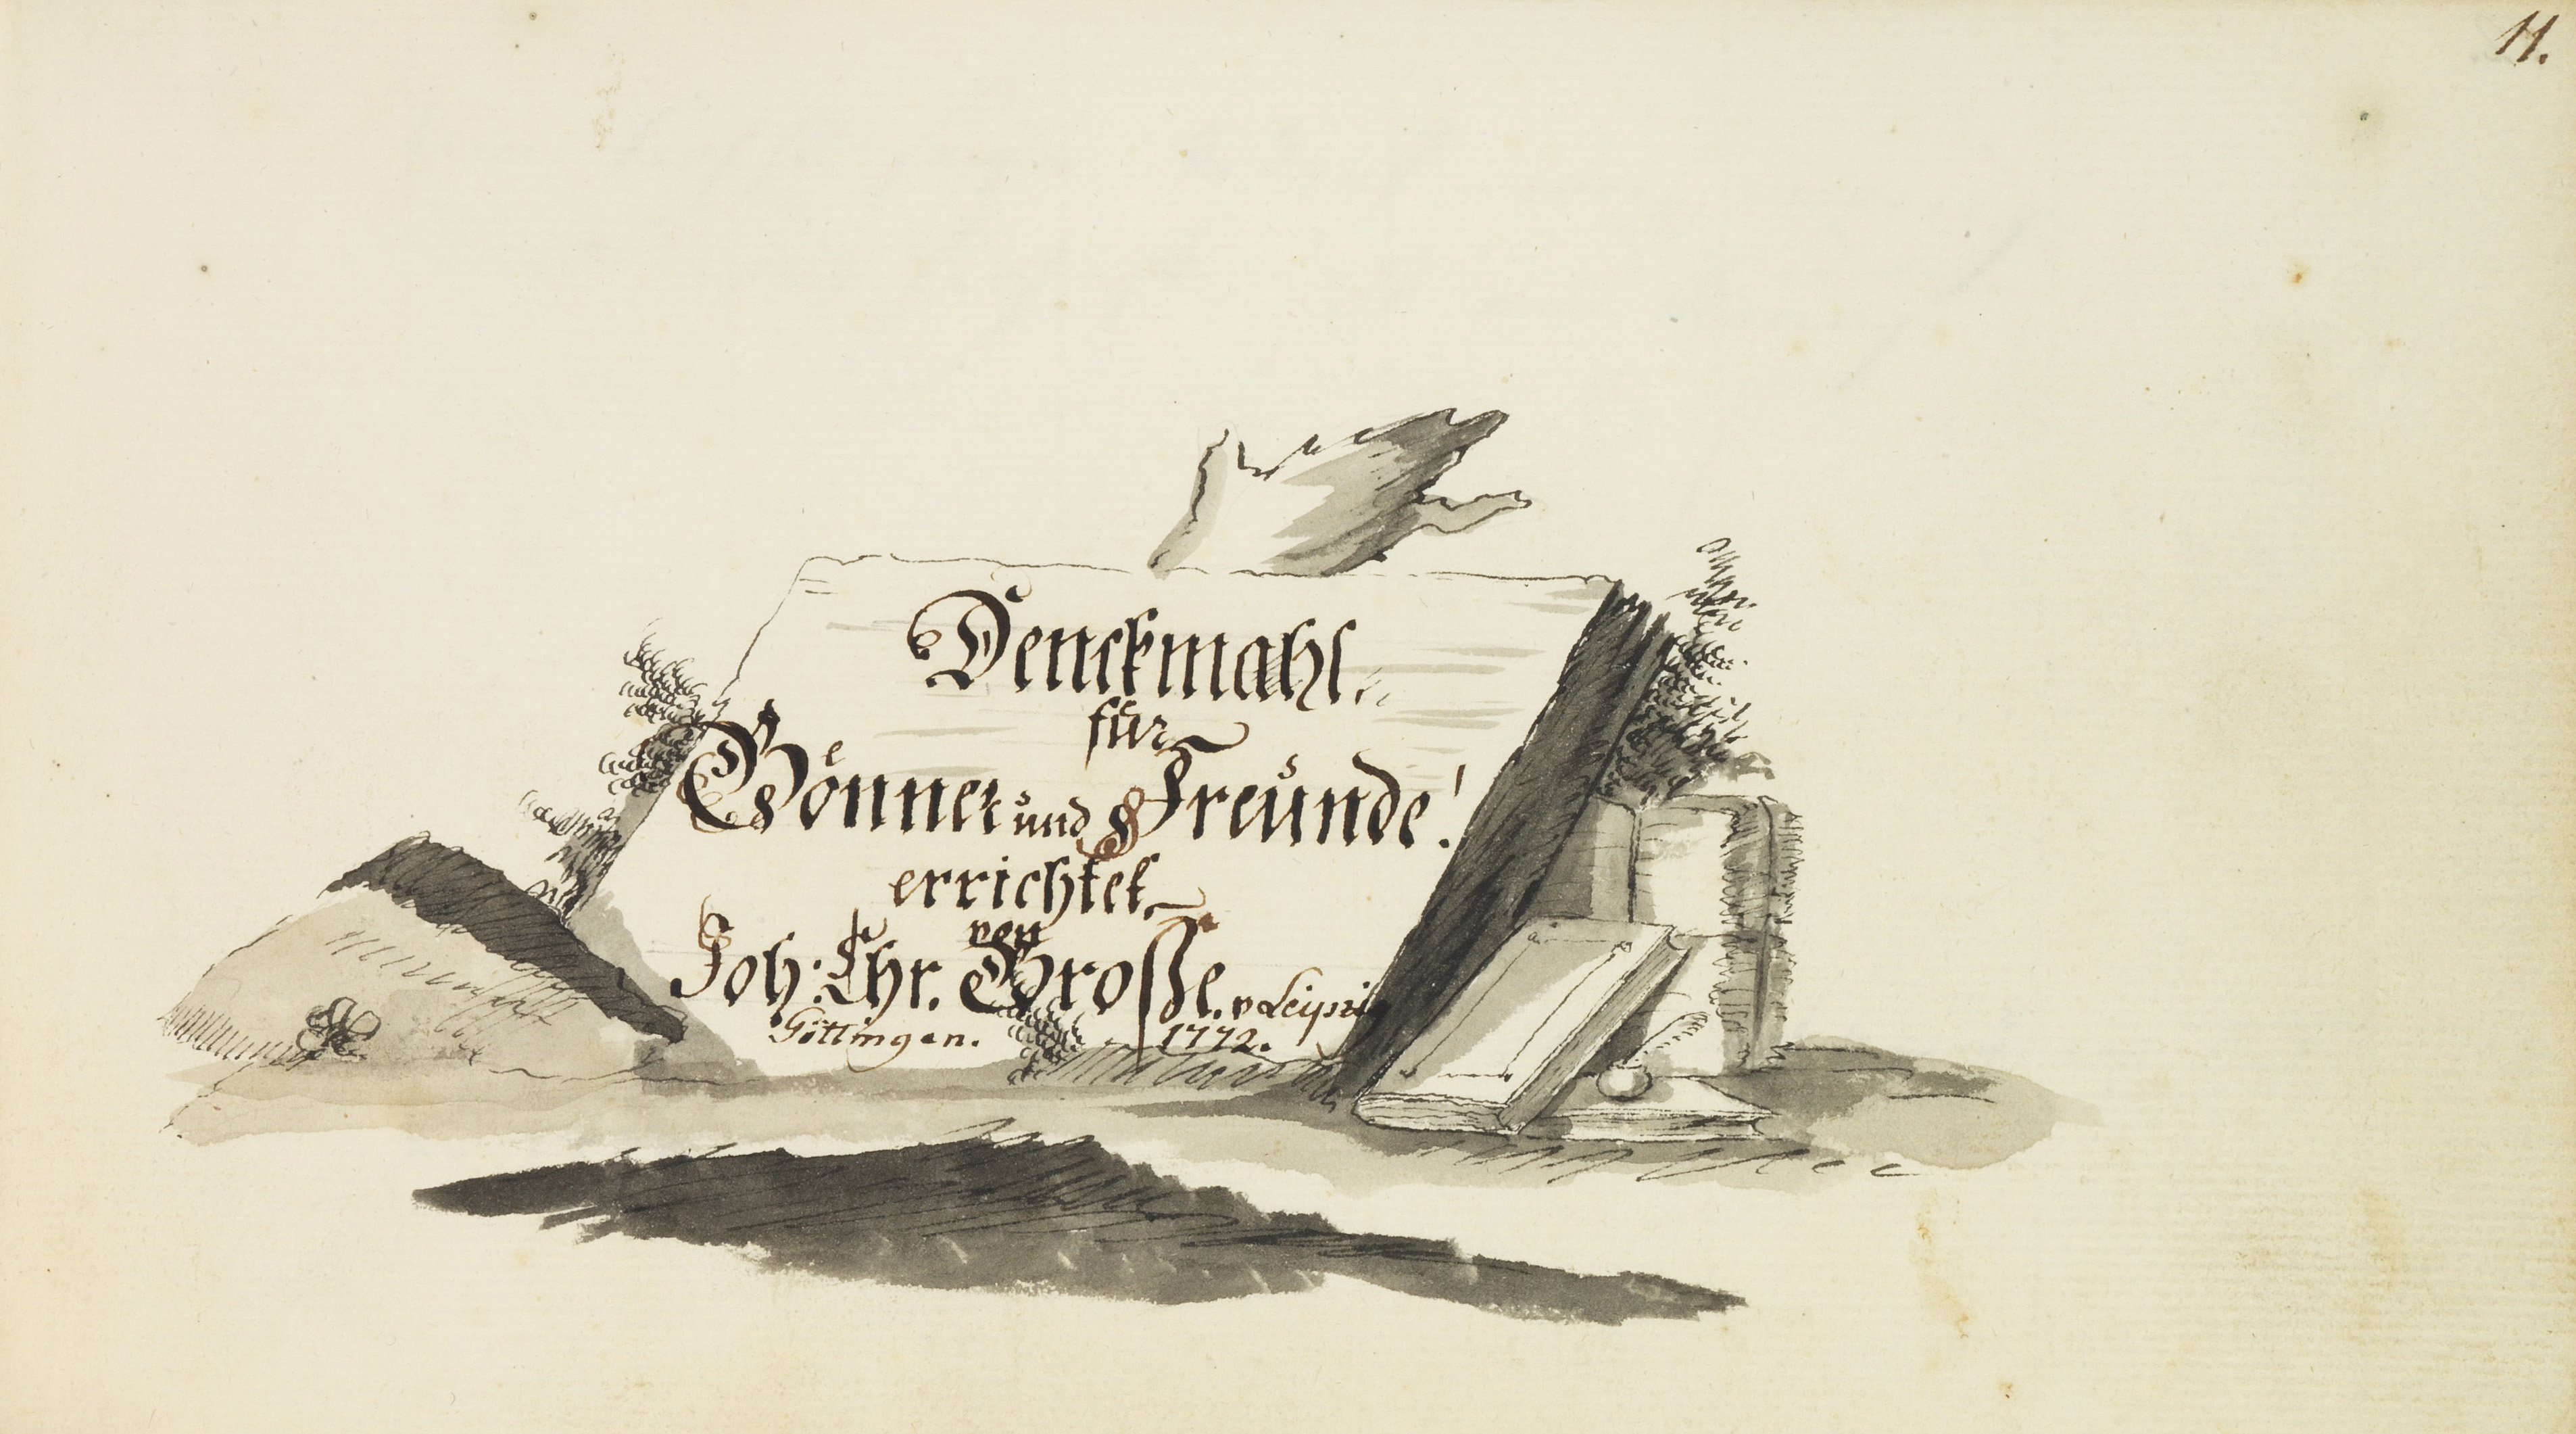 11.
Denckmahl.
für
Gönner und Freunde!
errichtet
von
Joh: Chr. Große. v Leipzig
Göttingen. 1772.